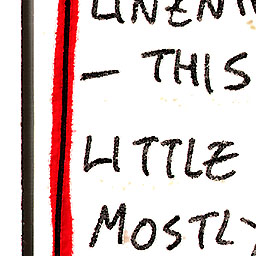 — THIS
LITTLE
MOSTLY